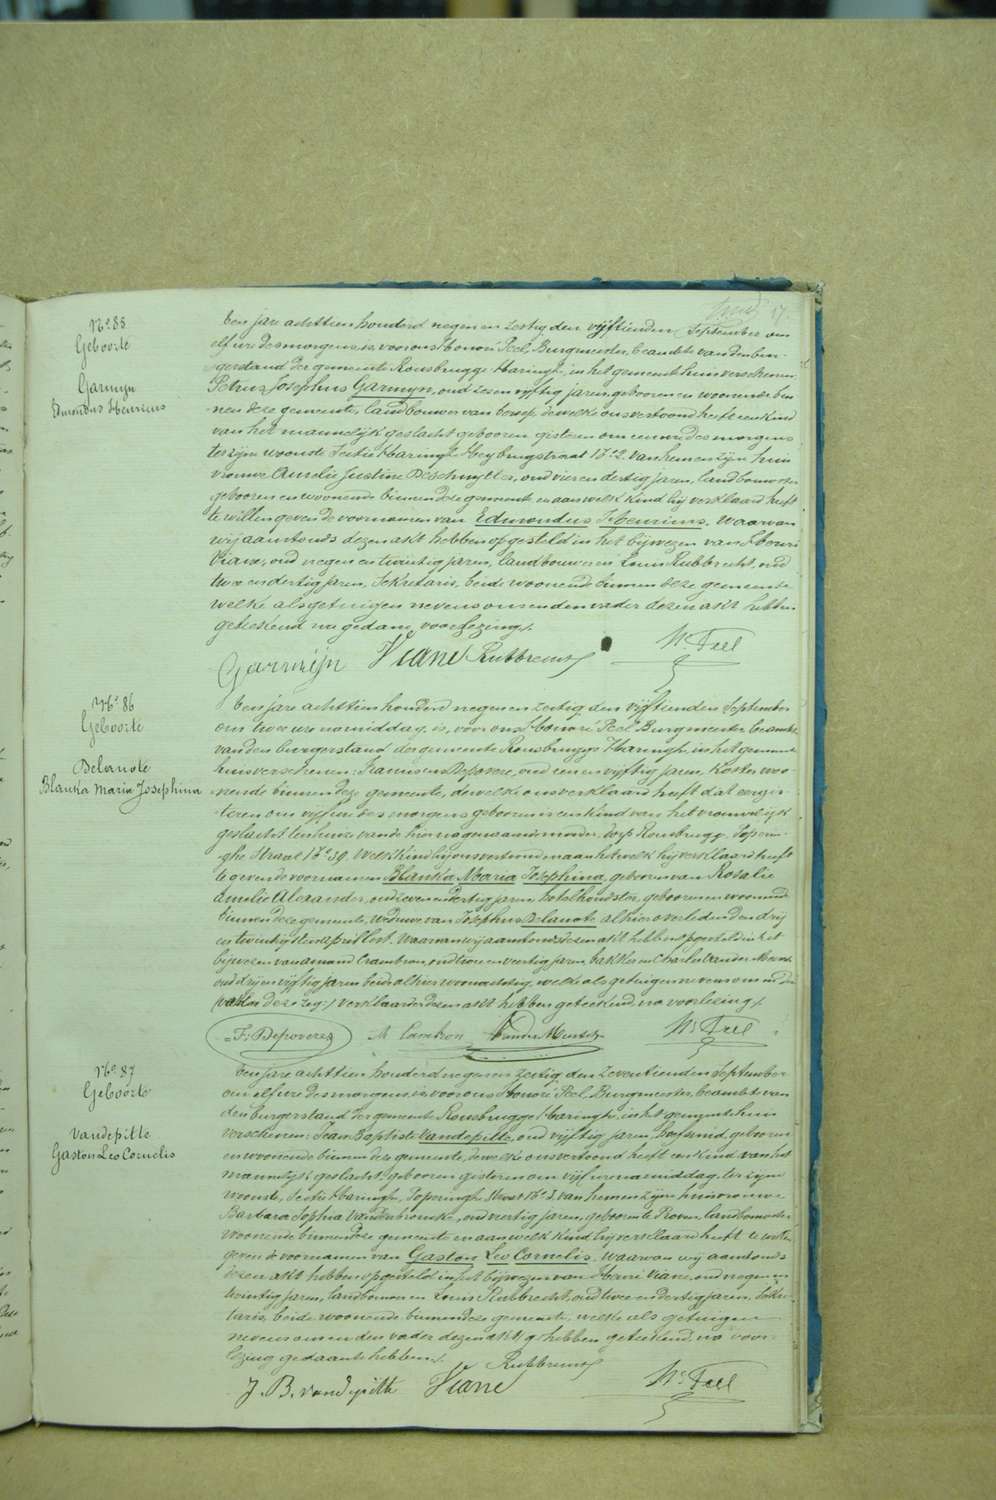 17.
N° 85
Geboorte
Garmyn
Edmondus Henricus
Een jare achttien honderd negen en zestig den vijftienden September om
elf ure des morgens, is voor ons Honoré Peel, Burgmeester, beambte van den bur-
gerstand der gemeente Rousbrugge Haringhe, in het gemeentehuis verschenen
Petrus Josephus Garmyn, oud zes en vyftig jaren, geboren en woonende bin-
nen deze gemeente, landbouwer van beroep, dewelke ons vertoond heeft een kind
van het mannelijk geslacht geboren gisteren om een ure des morgens
ter zijne woonste Sectie Haringhe straat N° 2. van hem en zijn huis
vrouwe Amelie Justine, oud vier en dertig jaren, landbouwster
geboren en woonende binnen deze gemeente en aan welk kind hij verklaard heeft
te willen geven de voornamen van Edmondus Henricus. Waarvan
wij aanstonds dezen akt hebben opgesteld in het bijwezen van Henri
Viane, oud negen en twintig jaren, landbouwer en Louis Rubbrecht, oud
twee en dertig jaren, Sekretaris, beide woonende binnen deze gemeente
welke als getuigen nevens ons en den vader dezen akt hebben
geteekend na gedane voorlezing.
Garmijn Viane Rubbrecht H. Peel
N° 86
Geboorte
Delanote
Blanka Maria Josephina
Een jare achttien honderd negen en zestig, den vijftienden September
om twee ure namiddag, is, voor ons Honoré Peel Burgmeester beambte
van den burgerstand der gemeente Rousbrugge Haringhe, in het gemeente
huis verschenen: Franciscus Depovere, oud een en vijftig jaren, koster woo-
nende binnen deze gemeente, dewelke ons verklaard heeft dat eergis-
teren om vijf ure des morgens geboren is een kind van het vrouwelijk
geslacht ten huize van de hierna genaamde moeder, dorp Rousbrugge Poperin-
ghe Straat N° 39. Welk kind hij ons vertoond en aan hetwelk hij verklaard heeft
te geven de voornamen Blanka Maria Josephina, geboren van Rosalie
Amelie Alexander, oud zeven en dertig jaren, hotelhoudster, geboren en woonende
binnen deze gemeente, weduwe van Josephus Delanote alhier overleden den drij
en twintigsten april lest. Waarvan wij aanstonds dezen akt hebben opgesteld in het
bijwezen van Amand Crambron, oud twee en veertig jaren, bakker en Charles Vander Mersch
oud drij en vijftig jaren beide alhier woonachtig, welke als getuigen nevens ons en den
verklaarder dezen akt hebben geteekend, na voorlezing.
F: Depoverez A Crambron Vander Mersch H. Peel
N° 87
Geboorte
Vandepitte
Gaston Leo Cornelis
Een jare achttien honderd negen en zestig, den zeventienden September
om elf ure des morgens, is voor ons Honoré Peel, Burgmeester, beambte van
den burgerstand der gemeente Rousbrugge Haringhe, in het gemeentehuis
verschenen: Jean Baptiste Vandepitte, oud vijftig jaren, hoefsmid, geboren
en woonende binnen deze gemeente, dewelke ons vertoond heeft een kind van het
mannelijk geslacht, geboren gisteren om vijf ure namiddag, ter zijne
woonste, Sectie Haringhe, Poperinghe Straat N° 3. van hem en zijne huisvrouwe
Barbara Sophia Vandenbroucke, oud veertig jaren, geboren te, landbouwster
woonende binnen deze gemeente en aan welk kind hij verklaard heeft te willen
geven de voornamen van Gaston Leo Cornelis. Waarvan wij aanstonds
dezen akt hebben opgesteld in het bijwezen van Henri Viane, oud negen en
twintig jaren, landbouwer en Louis Rubbrecht, oud twee en dertig jaren, Sekre-
taris, beide woonende binnen deze gemeente, welke als getuigen
nevens ons en den vader dezen akt hebben geteekend, na voor-
lezing gedaan te hebben.
Rubbrecht
J. B. vandepitte Viane H. Peel